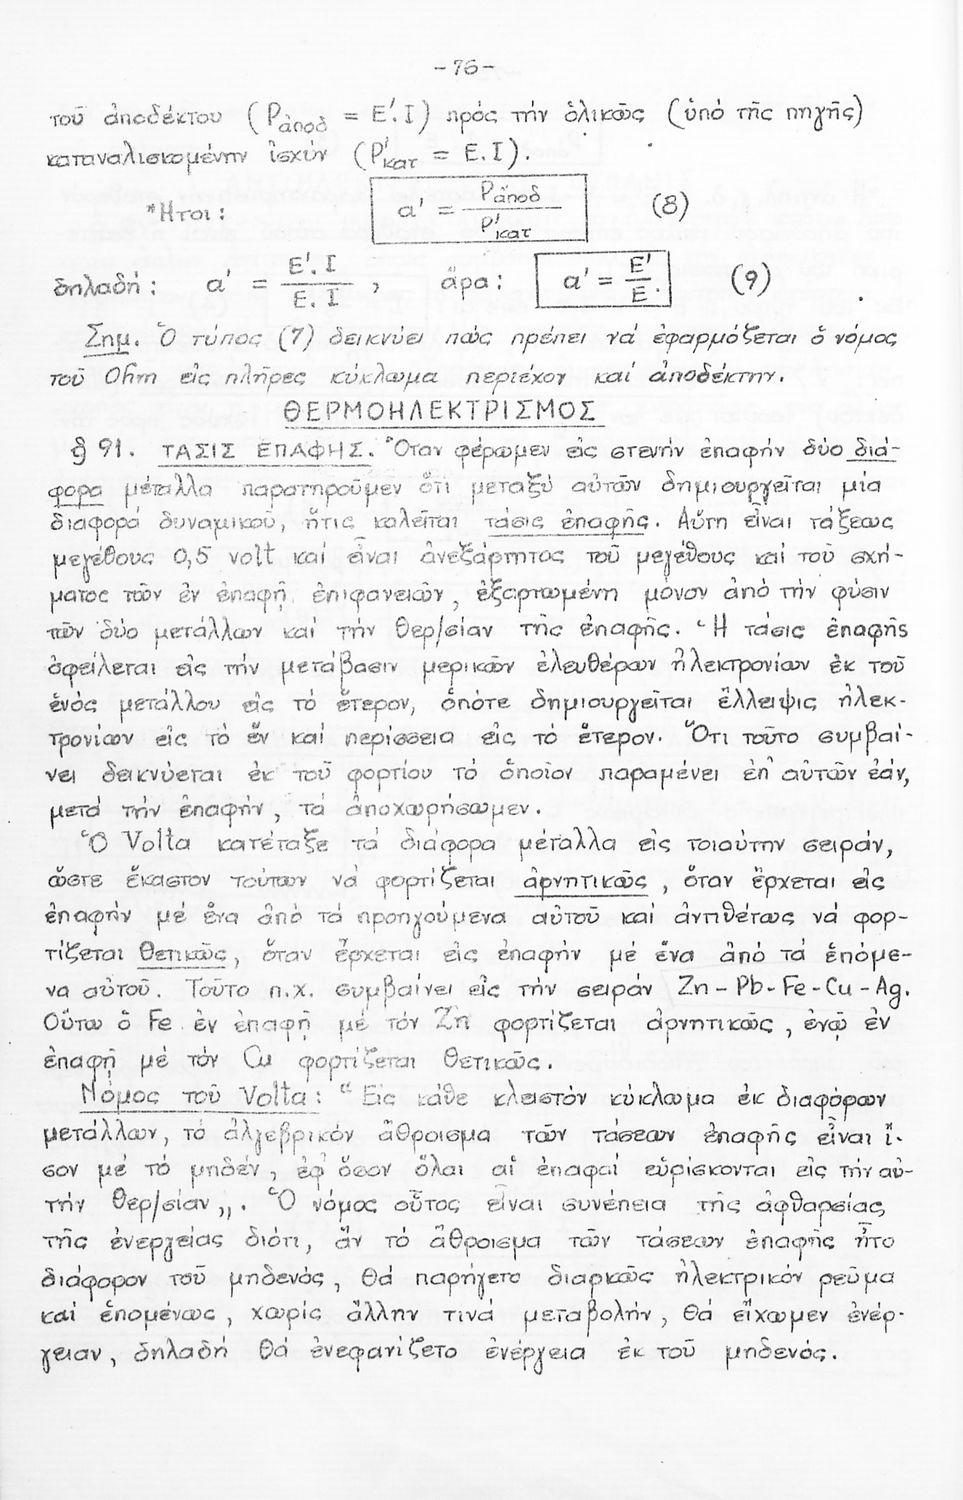 -76-
τοῦ ἀποδέκτου (Pἀποδ = E'.I) πρός τήν ὁλικῶς (ὑπό τῆς πηγῆς)
καταναλισκομένην ἰσχύν (P'κατ = E.I).
Ἤτοι: a' = Pἀποδ / P'κατ (8)
δηλαδή: a' = E'.I / E.I , ἄρα: a' = E' / E. (9)
Σημ. Ὁ τύπος (7) δεικνύει πῶς πρέπει νά ἐφαρμόζεται ὁ νόμος
τοῦ Ohm εἰς πλῆρες κύκλωμα περιέχον καί ἀποδέκτην.
ΘΕΡΜΟΗΛΕΚΤΡΙΣΜΟΣ
§ 91. ΤΑΣΙΣ ΕΠΑΦΗΣ. Ὅταν φέρωμεν εἰς στενήν ἐπαφήν δύο διά-
φορα μέταλλα παρατηροῦμεν ὅτι μεταξύ αὐτῶν δημιουργεῖται μία
διαφορά δυναμικοῦ, ἥτις καλεῖται τάσις ἐπαφῆς. Αὕτη εἶναι τάξεως
μεγέθους 0,5 volt καί εἶναι ἀνεξάρτητος τοῦ μεγέθους καί τοῦ σχή-
ματος τῶν ἐν ἐπαφῇ ἐπιφανειῶν, ἐξαρτωμένη μόνον ἀπό τήν φύσιν
τῶν δύο μετάλλων καί τήν θερ/σίαν τῆς ἐπαφῆς. Ἡ τάσις ἐπαφῆς
ὀφείλεται εἰς τήν μετάβασιν μερικῶν ἐλευθέρων ἠλεκτρονίων ἐκ τοῦ
ἑνός μετάλλου εἰς τό ἕτερον, ὁπότε δημιουργεῖται ἔλλειψις ἠλεκ-
τρονίων εἰς τό ἕν καί περίσσεια εἰς τό ἕτερον. Ὅτι τοῦτο συμβαί-
νει δεικνύεται ἐκ τοῦ φορτίου τό ὁποῖον παραμένει ἐπ' αὐτῶν ἐάν,
μετά τήν ἐπαφήν, τά ἀποχωρήσωμεν.
Ὁ Volta κατέταξε τά διάφορα μέταλλα εἰς τοιαύτην σειράν,
ὥστε ἕκαστον τούτων νά φορτίζεται ἀρνητικῶς, ὅταν ἔρχεται εἰς
ἐπαφήν μέ ἕνα ἀπό τά προηγούμενα αὐτοῦ καί ἀντιθέτως νά φορ-
τίζεται θετικῶς, ὅταν ἔρχεται εἰς ἐπαφήν μέ ἕνα ἀπό τά ἑπόμε-
να αὐτοῦ. Τοῦτο π.χ. συμβαίνει εἰς τήν σειράν Zn-Pb-Fe-Cu-Ag.
Οὕτω ὁ Fe ἐν ἐπαφῇ μέ τόν Zn φορτίζεται ἀρνητικῶς, ἐνῷ ἐν
ἐπαφῇ μέ τόν Cu φορτίζεται θετικῶς.
Νόμος τοῦ Volta: "Εἰς κάθε κλειστόν κύκλωμα ἐκ διαφόρων
μετάλλων, τό ἀλγεβρικόν ἄθροισμα τῶν τάσεων ἐπαφῆς εἶναι ἴ-
σον μέ τό μηδέν, ἐφ' ὅσον ὅλαι αἱ ἐπαφαί εὑρίσκονται εἰς τήν αὐ-
τήν θερ/σίαν,,. Ὁ νόμος οὗτος εἶναι συνέπεια τῆς ἀφθαρσίας
τῆς ἐνεργείας διότι, ἄν τό ἄθροισμα τῶν τάσεων ἐπαφῆς ἦτο
διάφορον τοῦ μηδενός, θά παρήγετο διαρκῶς ἠλεκτρικόν ρεῦμα
καί ἑπομένως, χωρίς ἄλλην τινά μεταβολήν, θά εἴχωμεν ἐνέρ-
γειαν, δηλαδή θά ἐνεφανίζετο ἐνέργεια ἐκ τοῦ μηδενός.